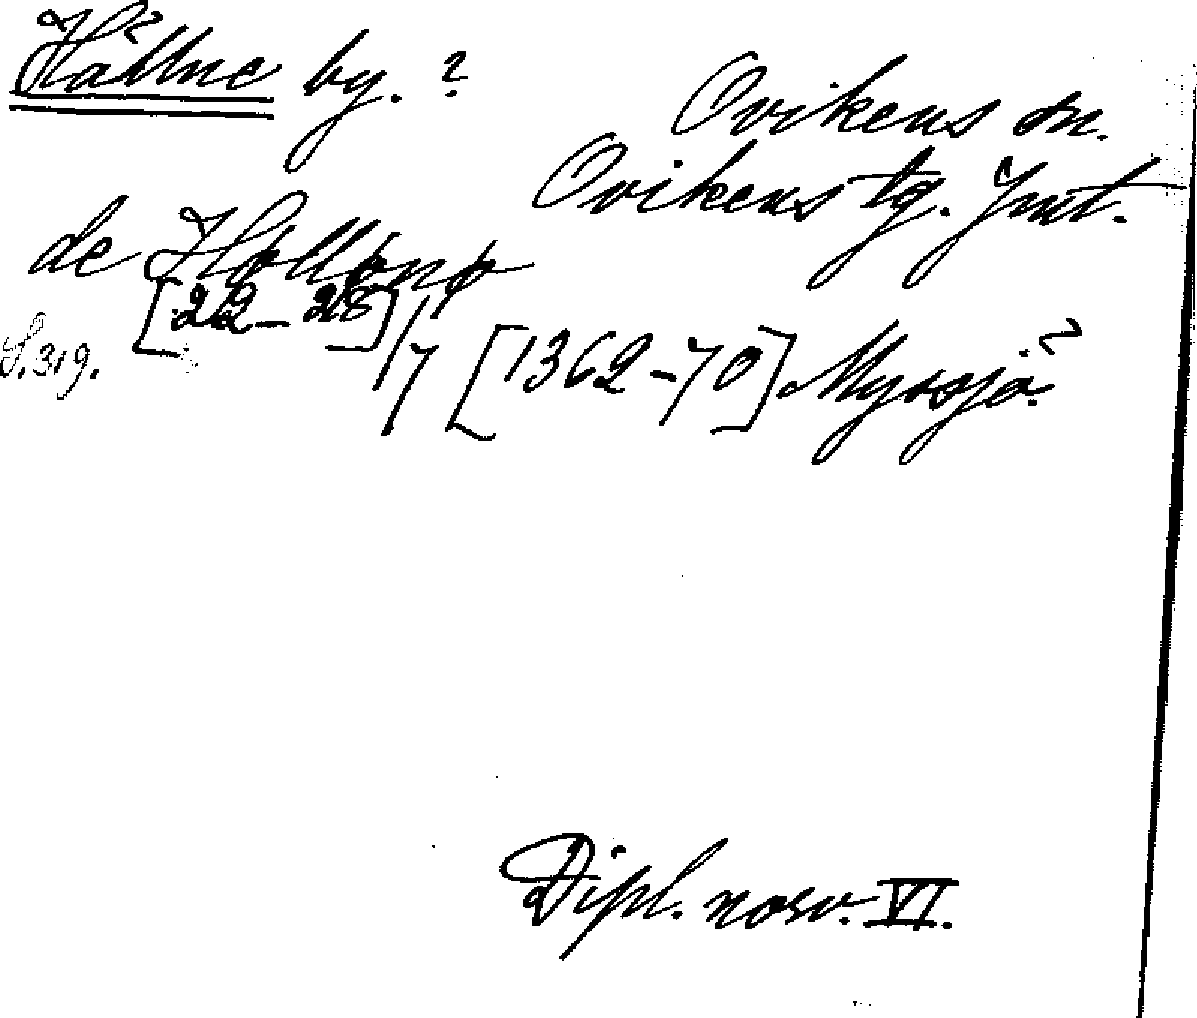 Hållne by. ?
Ovikens sn.
Ovikens tg. Jmt.
de Høllønø
S. 319.
[22-28]/7 [1362-70]. Myssjö.
Dipl. norv. VI.